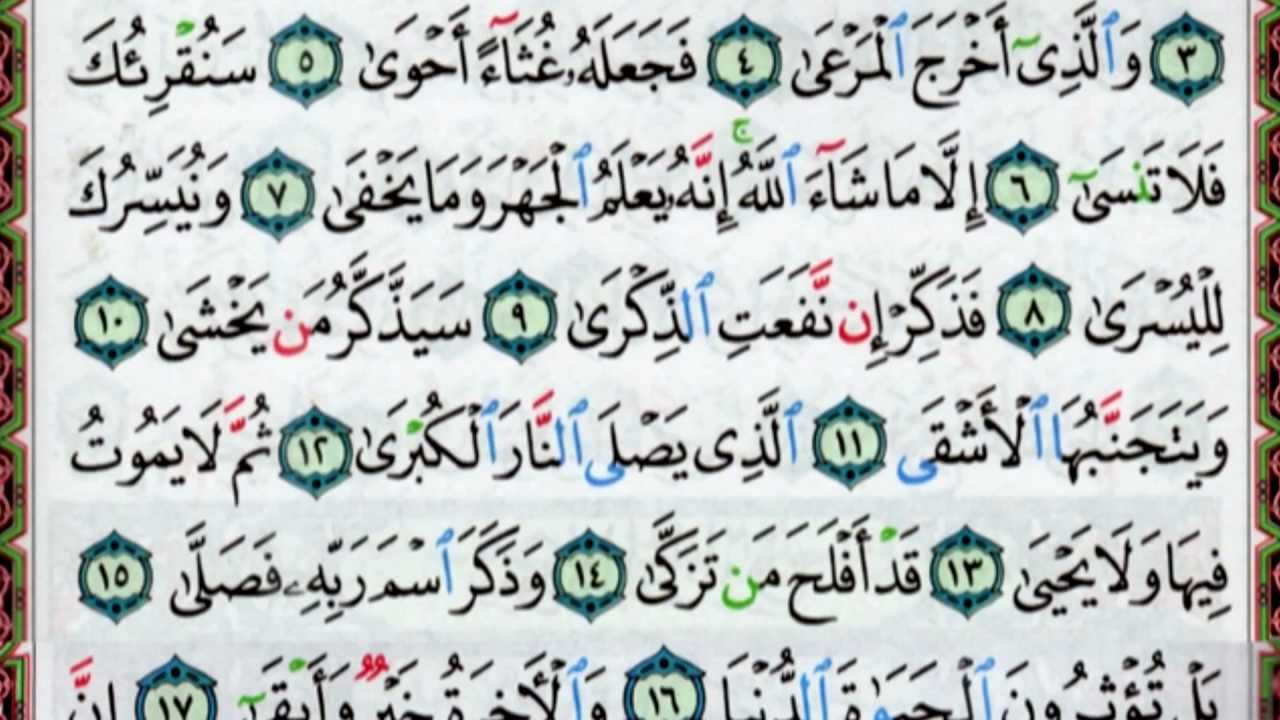 ٣ وَٱلَّذِىٓ أَخْرَجَ ٱلْمَرْعَىٰ ٤ فَجَعَلَهُۥ غُثَآءً أَحْوَىٰ ٥ سَنُقْرِئُكَ
فَلَا تَنسَىٰٓ ٦ إِلَّا مَا شَآءَ ٱللَّهُ ۚ إِنَّهُۥ يَعْلَمُ ٱلْجَهْرَ وَمَا يَخْفَىٰ ٧ وَنُيَسِّرُكَ
لِلْيُسْرَىٰ ٨ فَذَكِّرْ إِن نَّفَعَتِ ٱلذِّكْرَىٰ ٩ سَيَذَّكَّرُ مَن يَخْشَىٰ ١٠
وَيَتَجَنَّبُهَا ٱلْأَشْقَى ١١ ٱلَّذِى يَصْلَى ٱلنَّارَ ٱلْكُبْرَىٰ ١٢ ثُمَّ لَا يَمُوتُ
فِيهَا وَلَا يَحْيَىٰ ١٣ قَدْ أَفْلَحَ مَن تَزَكَّىٰ ١٤ وَذَكَرَ ٱسْمَ رَبِّهِۦ فَصَلَّىٰ ١٥
بَلْ تُؤْثِرُونَ ٱلْحَيَوٰةَ ٱلدُّنْيَا ١٦ وَٱلْأَخِرَةُ خَيْرٌ وَأَبْقَىٰٓ ١٧ إِنَّ